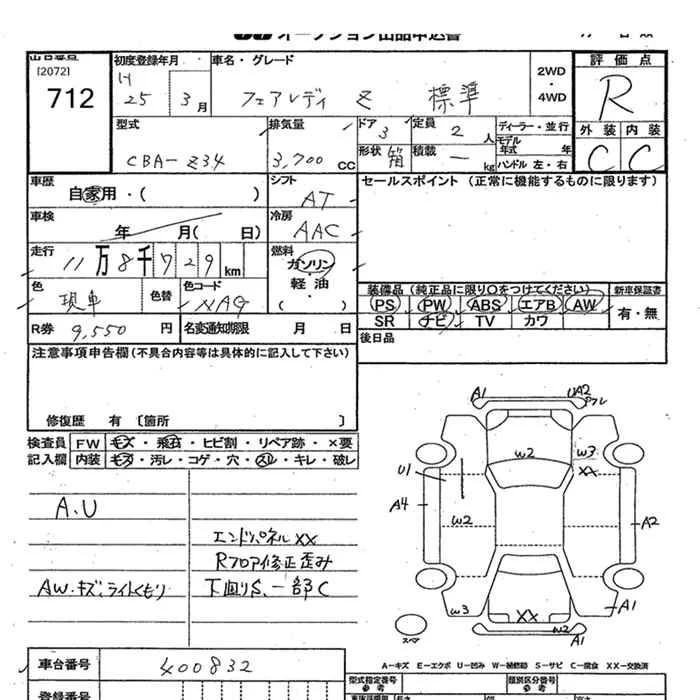 オークション出品申込書
出品番号
[2072]
712
初度登録年月
H
25 3月
車名・グレード
フェアレディ Z 標準
2WD
・
4WD
評価点
R
外装 内装
C C
型式
CBA-Z34
排気量
3,700 CC
ドア
3
定員
2 人
形状
積載
— kg
ディーラー・並行
モデル年式 年
ハンドル 左・右
車歴
自家用・( )
シフト
AT
セールスポイント (正常に機能するものに限ります)
車検
年 月( 日)
冷房
AAC
走行
11万8千729km
燃料
ガソリン
軽油
・( )
色
現車
色替
色コード
R券 9,550 円
名変通知期限 月 日
装備品(純正品に限り○をつけてください)
新車保証書
PS PW ABS エアB AW
有・無
SR ナビ TV カワ
後日品
注意事項申告欄(不具合内容等は具体的に記入して下さい)
修復歴 有 〔箇所 〕
検査員 FW キズ・飛石・ヒビ割・リペア跡・×要
記入欄 内装 キズ・汚レ・コゲ・穴・スレ・キレ・破レ
A.U
AW・キズ、ライトくもり
エンドパネルXX
Rフロア修正歪み
下回りS、一部C
A1
UA2
W2
W3
XX
U1
A4
W2
A2
W3
XX
W2
A1
A1
スペア
A−キズ E−エクボ U−凹み W−補修跡 S−サビ C−腐食 XX−交換済
車台番号 400832
登録番号
型式指定番号
参考
類別区分番号
参考